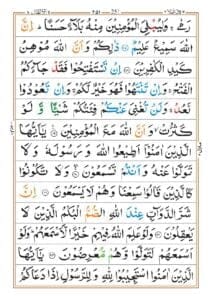 رَمٰى ۚ وَلِيُبْلِيَ الْمُؤْمِنِيْنَ مِنْهُ بَلَآءً حَسَنًا ؕ اِنَّ
اللّٰهَ سَمِيْعٌ عَلِيْمٌ ۝ ذٰلِكُمْ وَاَنَّ اللّٰهَ مُوْهِنُ
كَيْدِ الْكٰفِرِيْنَ ۝ اِنْ تَسْتَفْتِحُوْا فَقَدْ جَآءَكُمُ
الْفَتْحُ ۚ وَاِنْ تَنْتَهُوْا فَهُوَ خَيْرٌ لَّكُمْ ۚ وَاِنْ تَعُوْدُوْا
نَعُدْ ۚ وَلَنْ تُغْنِيَ عَنْكُمْ فِئَتُكُمْ شَيْـًٔا وَّلَوْ
كَثُرَتْ ۙ وَاَنَّ اللّٰهَ مَعَ الْمُؤْمِنِيْنَ ۝ يٰۤاَيُّهَا
الَّذِيْنَ اٰمَنُوْۤا اَطِيْعُوا اللّٰهَ وَرَسُوْلَهٗ وَلَا
تَوَلَّوْا عَنْهُ وَاَنْتُمْ تَسْمَعُوْنَ ۝ وَلَا تَكُوْنُوْا
كَالَّذِيْنَ قَالُوْا سَمِعْنَا وَهُمْ لَا يَسْمَعُوْنَ ۝ اِنَّ
شَرَّ الدَّوَآبِّ عِنْدَ اللّٰهِ الصُّمُّ الْبُكْمُ الَّذِيْنَ لَا
يَعْقِلُوْنَ ۝ وَلَوْ عَلِمَ اللّٰهُ فِيْهِمْ خَيْرًا لَّاَسْمَعَهُمْ ؕ وَلَوْ
اَسْمَعَهُمْ لَتَوَلَّوْا وَّهُمْ مُّعْرِضُوْنَ ۝ يٰۤاَيُّهَا
الَّذِيْنَ اٰمَنُوا اسْتَجِيْبُوْا لِلّٰهِ وَلِلرَّسُوْلِ اِذَا دَعَاكُمْ